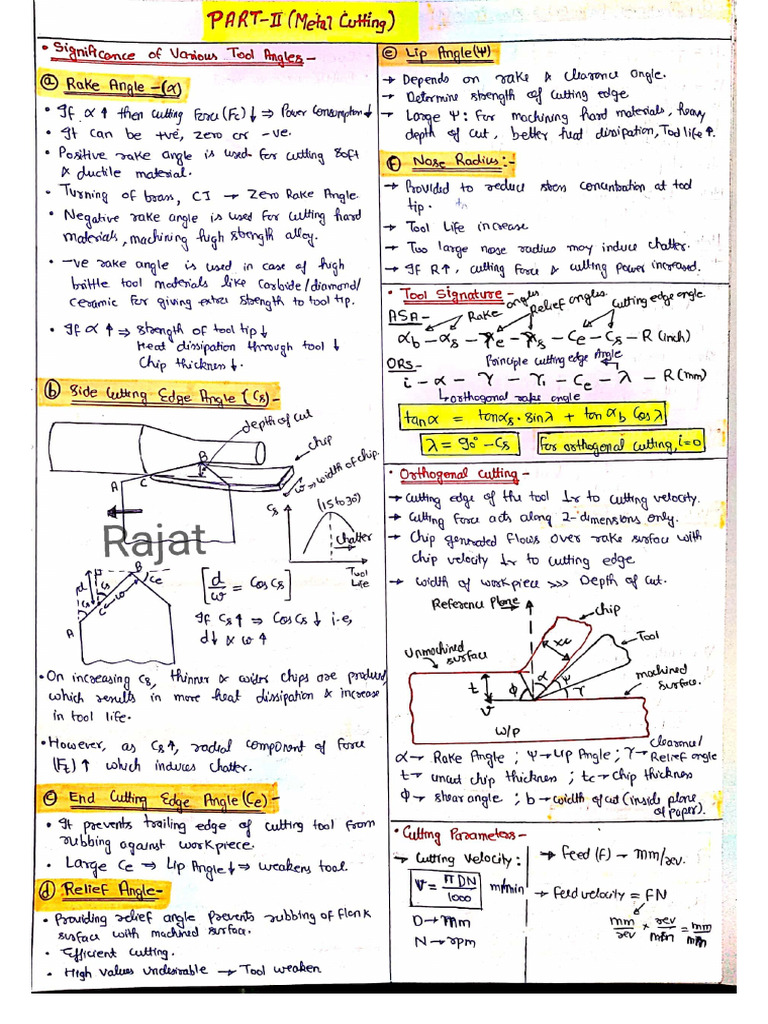 PART-II (Metal Cutting)
• Significance of Various Tool Angles -
(a) Rake Angle -(α)
• If α ↑ then cutting Force (Fc) ↓ → Power Consumption ↓
• It can be +ve, zero or -ve.
• Positive rake angle is used for cutting soft
& ductile material.
• Turning of brass, CI → Zero Rake Angle.
• Negative rake angle is used for cutting hard
materials, machining high strength alloy.
• -ve rake angle is used in case of high
brittle tool materials like Carbide/diamond/
ceramic for giving extra strength to tool tip.
• If α ↑ ⇒ strength of tool tip ↓
Heat dissipation through tool ↓
Chip thickness ↓.
(b) Side Cutting Edge Angle (Cs) -
depth of cut
chip
B
w → width of chip.
A
C
Rajat
Cs
(15 to 30)
chatter
Tool
Life
B
d
Cs
Ce
w
Cs
C
A
[d/w = Cos Cs]
If Cs ↑ ⇒ Cos Cs ↓ i.e,
d↓ & w↑
• On increasing Cs, thinner & wider chips are produced
which results in more heat dissipation & increase
in tool life.
• However, as Cs↑, radial component of force
(Ft) ↑ which induces chatter.
(c) End Cutting Edge Angle (Ce) -
• It prevents trailing edge of cutting tool from
rubbing against workpiece.
• Large Ce ⇒ Lip Angle ↓ ⇒ weakens tool.
(d) Relief Angle -
• Providing relief angle prevents rubbing of flank
surface with machined surface.
• Efficient cutting.
• High values undesirable → Tool weaken
(e) Lip Angle (Ψ)
→ Depends on rake & clearance angle.
→ Determine strength of cutting edge
→ Large Ψ: For machining hard materials, heavy
depth of cut, better heat dissipation, Tool life ↑.
(f) Nose Radius:-
→ Provided to reduce stress concentration at tool
tip.
→ Tool Life increase
→ Too large nose radius may induce chatter.
→ If R↑, cutting force & cutting power increased.
• Tool Signature -
Rake angles
Relief angles
Cutting edge angle
ASA -
αb - αs - γe - γs - Ce - Cs - R (inch)
ORS -
Principle cutting edge Angle
i - α - γ - γ₁ - Ce - λ - R (mm)
orthogonal rake angle
tan α = tan αs . sin λ + tan αb Cos λ
λ = 90° - Cs
For orthogonal cutting, i=0
• Orthogonal Cutting -
→ Cutting edge of the tool ⊥r to cutting velocity.
→ Cutting force acts along 2-dimensions only.
→ Chip generated flows over rake surface with
chip velocity ⊥r to cutting edge
→ Width of workpiece >>> Depth of cut.
Reference Plane
chip
Tool
Unmachined
surface
machined
surface.
t
v
ϕ
α
Ψ
γ
W/P
α → Rake Angle ; Ψ → Lip Angle ; γ → Clearance/
Relief angle
t → uncut chip thickness ; tc → chip thickness
ϕ → shear angle ; b → width of cut (inside plane
of paper).
• Cutting Parameters -
→ Cutting Velocity:
V = πDN/1000 m/min
D → mm
N → rpm
→ Feed (F) → mm/rev.
→ Feed velocity = FN
mm/rev × rev/min = mm/min